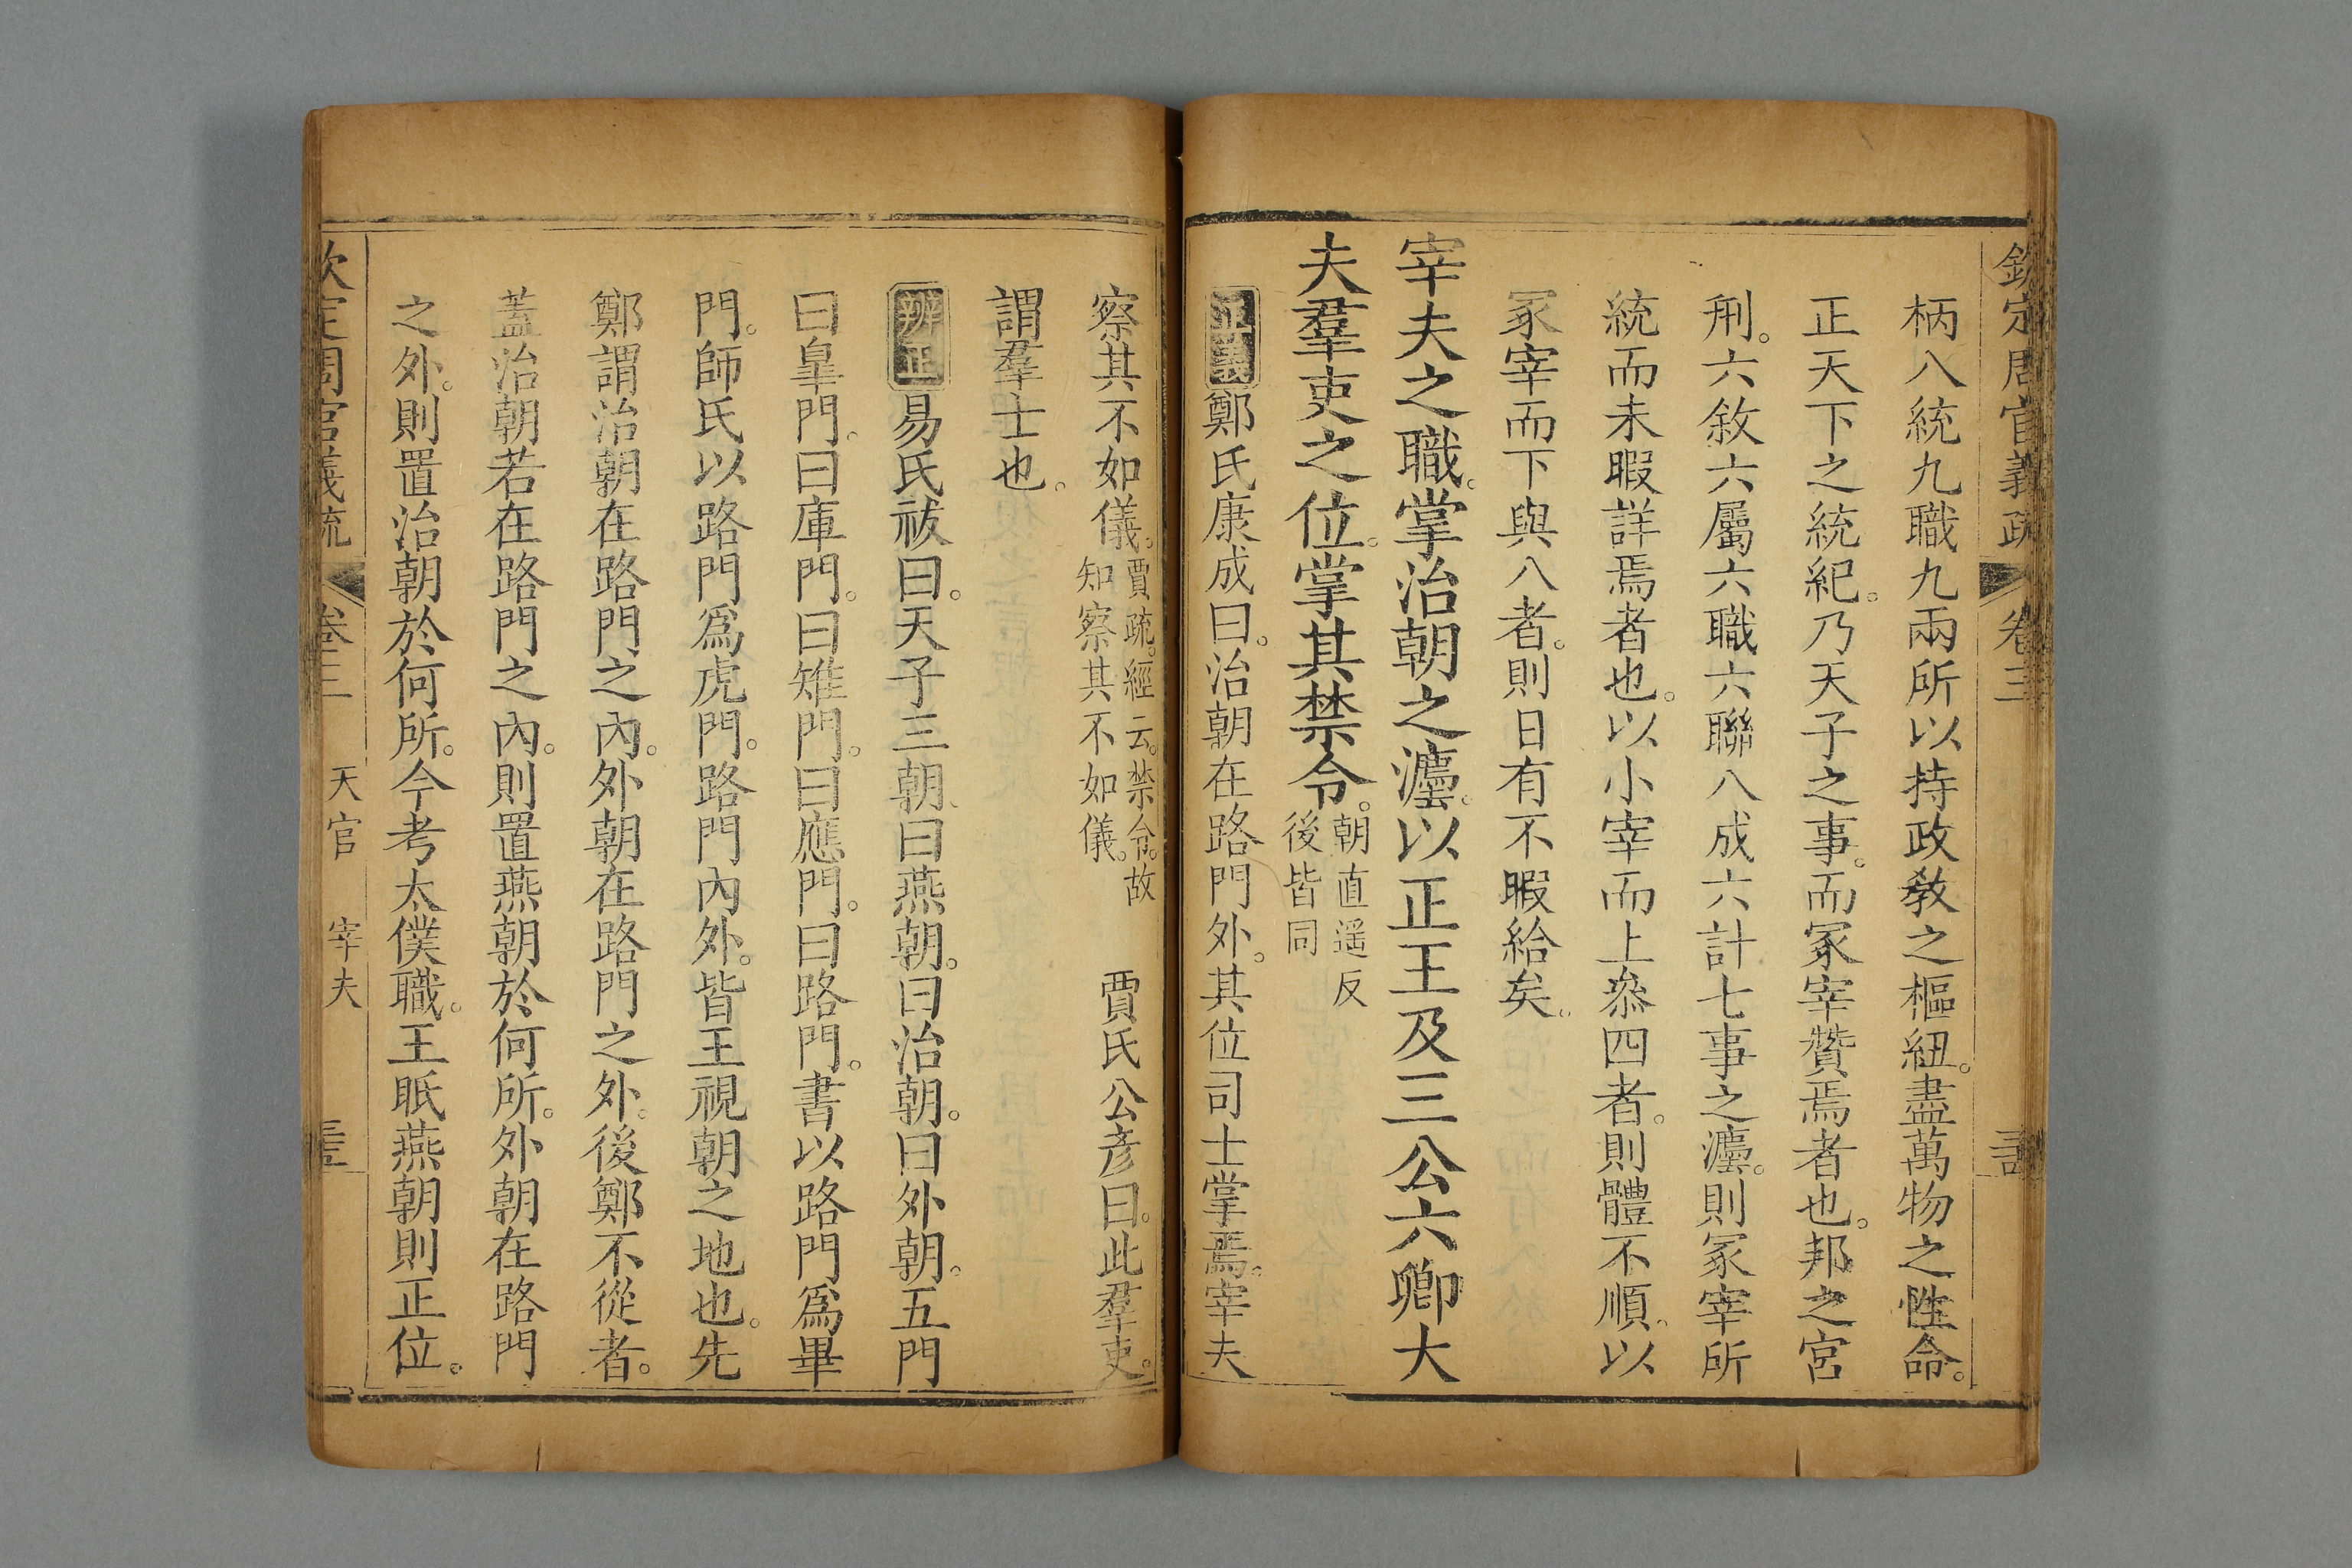 欽定周官義疏 卷三
柄八統九職九兩所以持政敎之樞紐。盡萬物之性命。
正天下之統紀。乃天子之事。而冢宰贊焉者也。邦之宮
刑。六敘六屬六職六聯八成六計七事之灋。則冢宰所
統而未暇詳焉者也。以小宰而上叅四者。則體不順。以
冢宰而下與八者。則日有不暇給矣。
宰夫之職。掌治朝之灋。以正王及三公六卿大
夫羣吏之位。掌其禁令。朝直遥反
後皆同
正義鄭氏康成曰。治朝在路門外。其位司士掌焉。宰夫
察其不如儀。賈疏。經云。禁令。故
知察其不如儀。
賈氏公彥曰。此羣吏。
謂羣士也。
辨正易氏祓曰。天子三朝、曰燕朝。曰治朝。曰外朝。五門
曰皐門。曰庫門。曰雉門。曰應門。曰路門。書以路門爲畢
門。師氏以路門爲虎門。路門內外。皆王視朝之地也。先
鄭謂治朝在路門之內。外朝在路門之外。後鄭不從者。
蓋治朝若在路門之內。則置燕朝於何所。外朝在路門
之外。則置治朝於何所。今考太僕職。王眡燕朝則正位。
欽定周官義疏 卷三 天官 宰夫